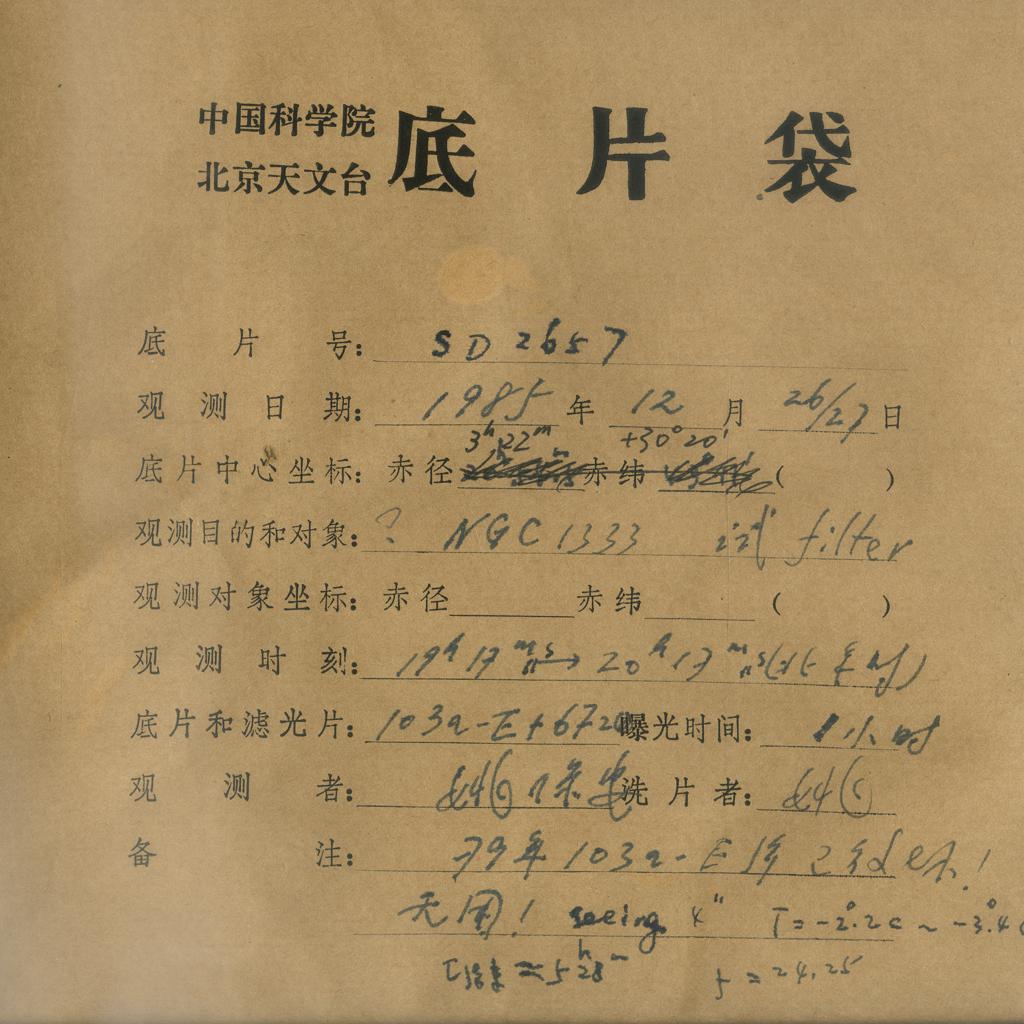 中国科学院
北京天文台
底片袋
底片号: SD 2657
观测日期: 1985年 12月 26/27日
3h 22m +30° 20'
底片中心坐标: 赤径 赤纬 ( )
观测目的和对象: ? NGC 1333 试 filter
观测对象坐标: 赤径 赤纬 ( )
观测时刻: 19h 17m → 20h 17m
底片和滤光片: 103a-E+672 曝光时间: 1小时
观测者: 洗片者:
备注: 79年 103a-E
无用! seeing 4" T=-2°.2c ~ -3°.4c
≈5h28m f = 24.25